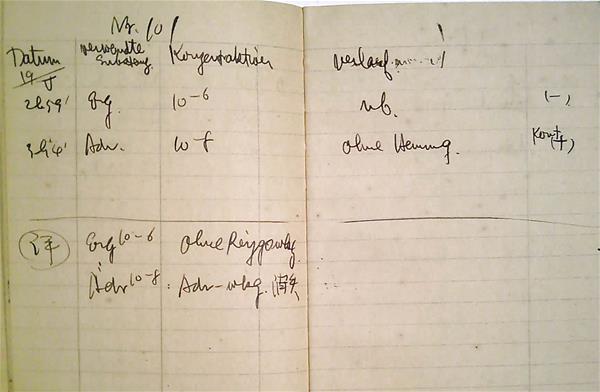 Nr. 10
Datum verwendte Substanz Konzentration Verlauf
19/V
2h59' Erg. 10-6 nb. (-)
3h4' Adr. 10-8 ohne Hemung. Kont(+)
Erg 10-6 ohne Reizgswkg.
Adr 10-8: Adr-wkg. 消失